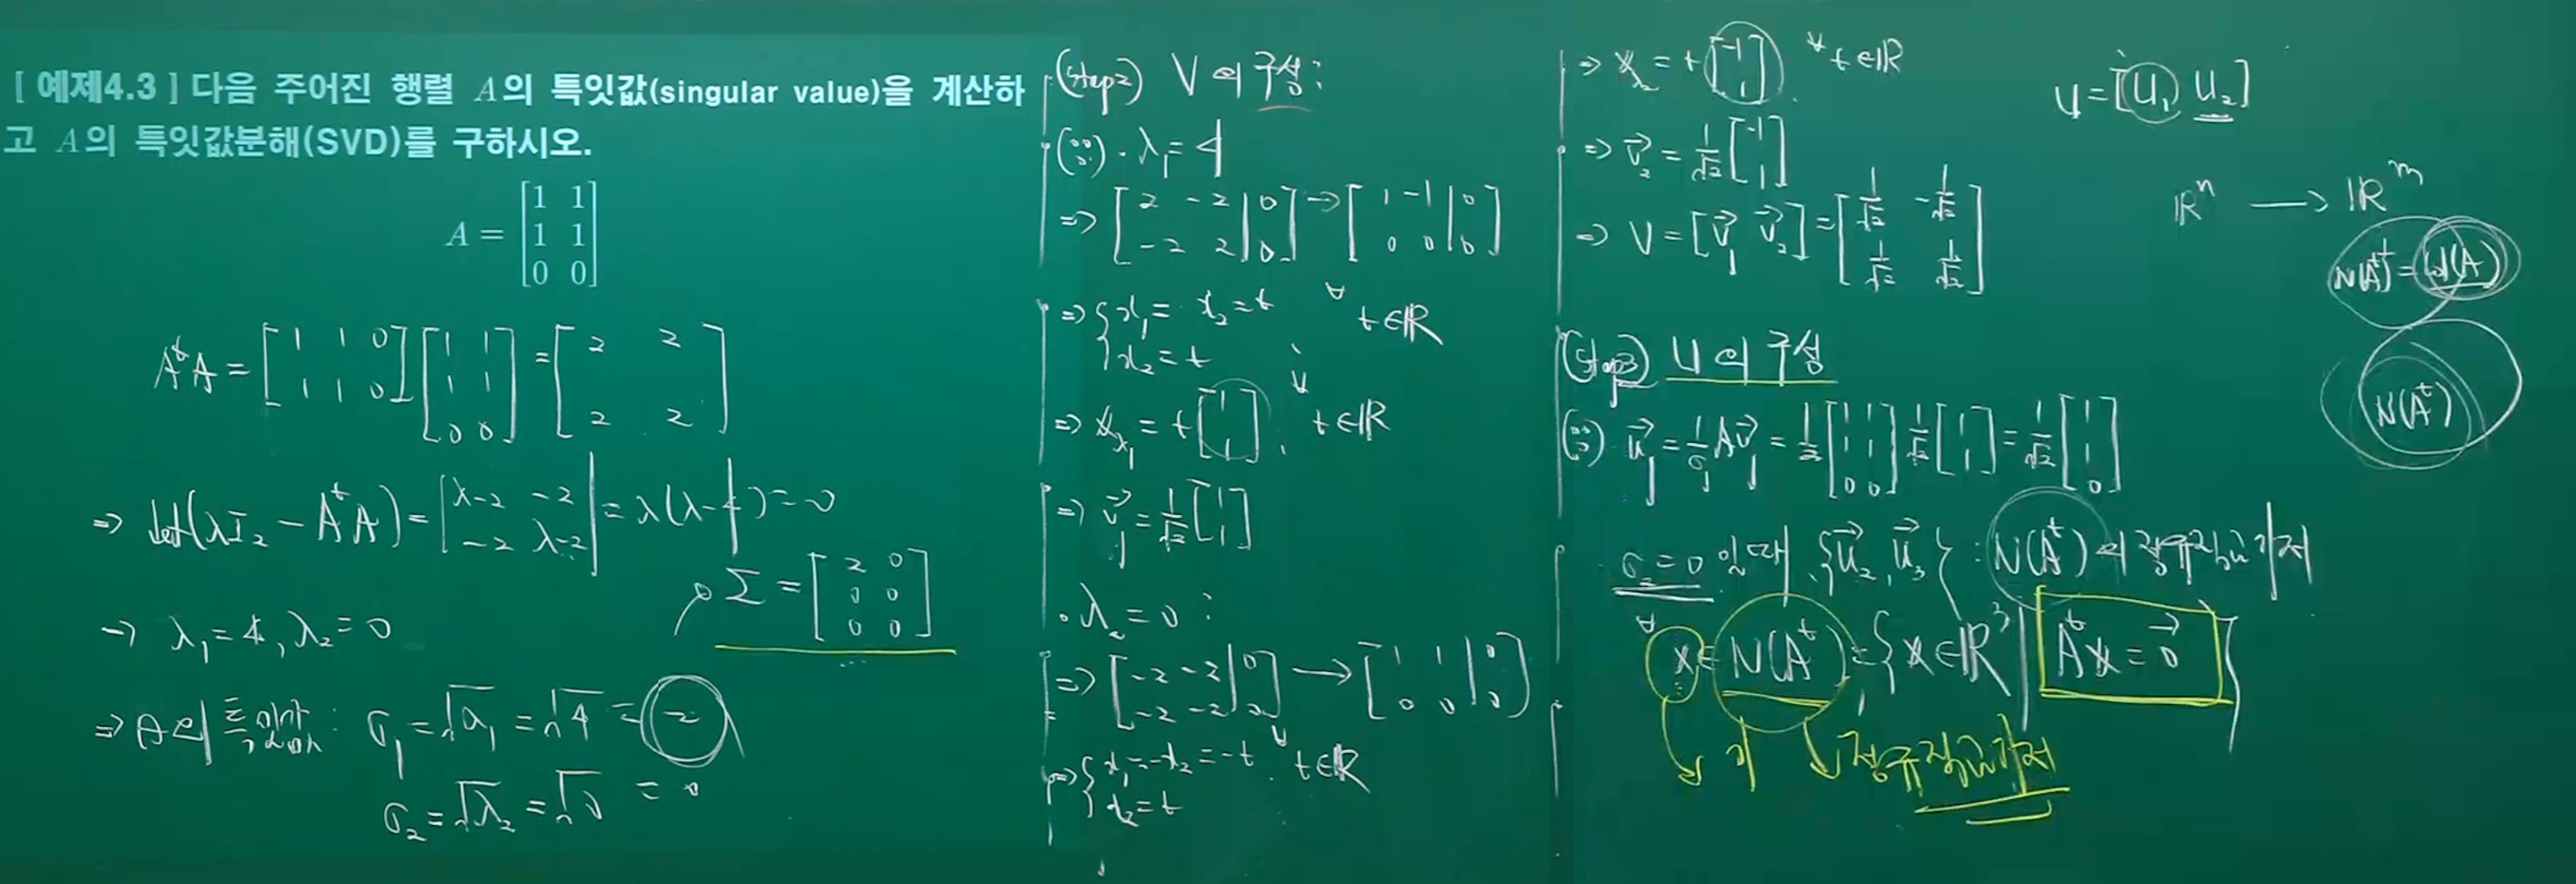 [ 예제4.3 ] 다음 주어진 행렬 A의 특잇값(singular value)을 계산하
고 A의 특잇값분해(SVD)를 구하시오.
A = [1 1; 1 1; 0 0]
AᵗA = [1 1 0; 1 1 0][1 1; 1 1; 0 0] = [2 2; 2 2]
⇒ det(λI₂ - AᵗA) = |λ-2 -2; -2 λ-2| = λ(λ-4) = 0
→ λ₁ = 4, λ₂ = 0
⇒ A의 특잇값 : σ₁ = √λ₁ = √4 = 2
σ₂ = √λ₂ = √0 = 0
Σ = [2 0; 0 0; 0 0]
(Step2) V의 구성 :
(∵) · λ₁ = 4
⇒ [2 -2 | 0; -2 2 | 0] → [1 -1 | 0; 0 0 | 0]
⇒ { x₁ = x₂ = t ∀t∈ℝ
x₂ = t
⇒ 𝕩λ₁ = t[1; 1], ∀t∈ℝ
⇒ v⃗₁ = 1/√2 [1; 1]
· λ₂ = 0 :
⇒ [-2 -2 | 0; -2 -2 | 0] → [1 1 | 0; 0 0 | 0]
⇒ { x₁ = -x₂ = -t ∀t∈ℝ
x₂ = t
⇒ 𝕩λ₂ = t[-1; 1] ∀t∈ℝ
⇒ v⃗₂ = 1/√2 [-1; 1]
⇒ V = [v⃗₁ v⃗₂] = [1/√2 -1/√2; 1/√2 1/√2]
(Step3) U의 구성
(∵) u⃗₁ = 1/σ₁ Av⃗₁ = 1/2 [1 1; 1 1; 0 0] 1/√2 [1; 1] = 1/√2 [1; 1; 0]
σ₂ = 0 일때, {u⃗₂, u⃗₃} : N(Aᵗ)의 정규직교기저
∀𝕩∈N(Aᵗ) = {𝕩∈ℝ³ | Aᵗ𝕩 = 0⃗}
의 정규직교기저
U = [U₁ U₂]
ℝⁿ → ℝᵐ
N(Aᵗ)⊥ = col(A)
N(Aᵗ)